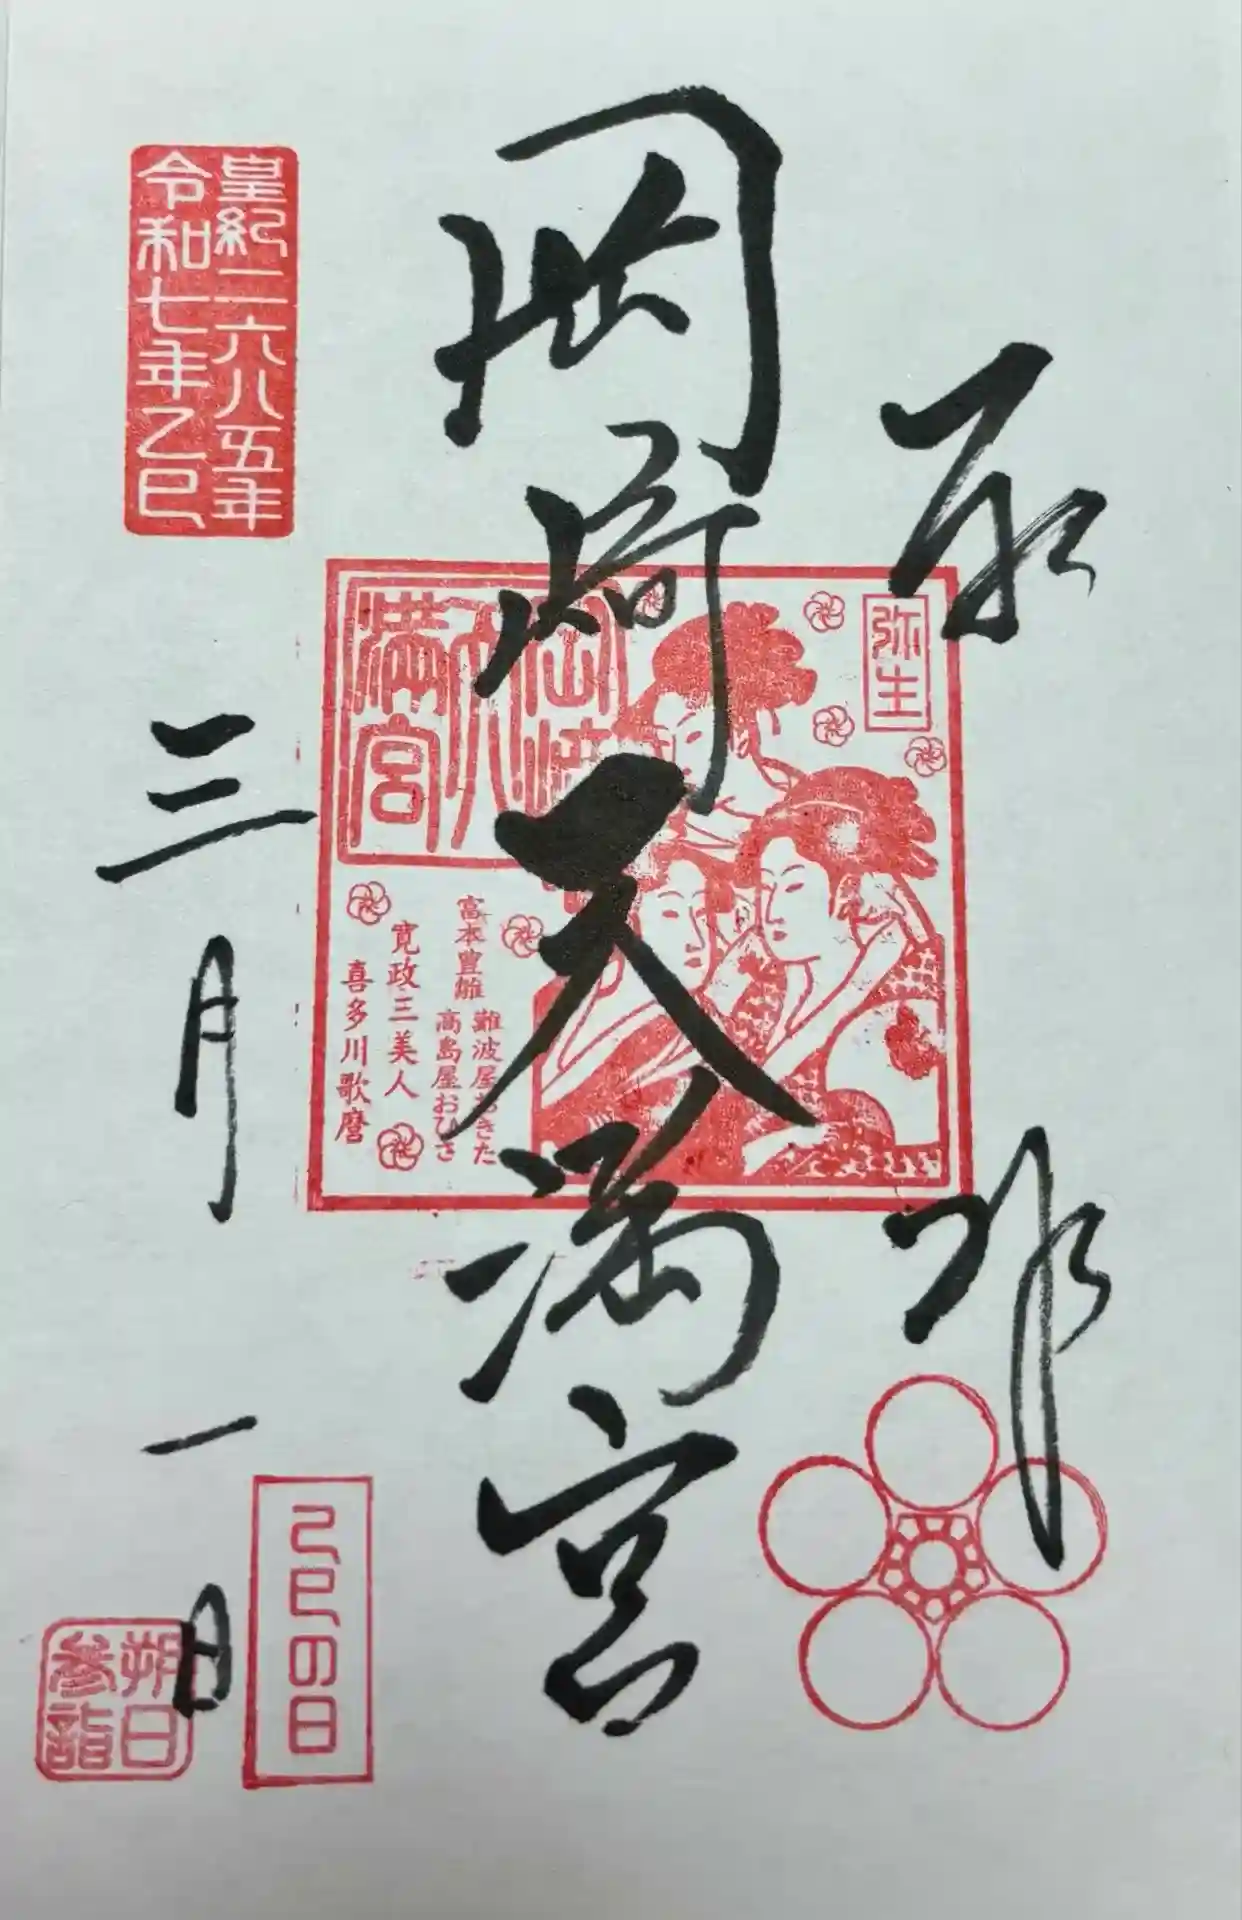 奉拝
岡崎天満宮
三月一日
皇紀二六八五年
令和七年乙巳
弥生
岡崎
天
満宮
富本豊雛
難波屋おきた
高島屋おひさ
寛政三美人
喜多川歌麿
己巳の日
朔日
参詣